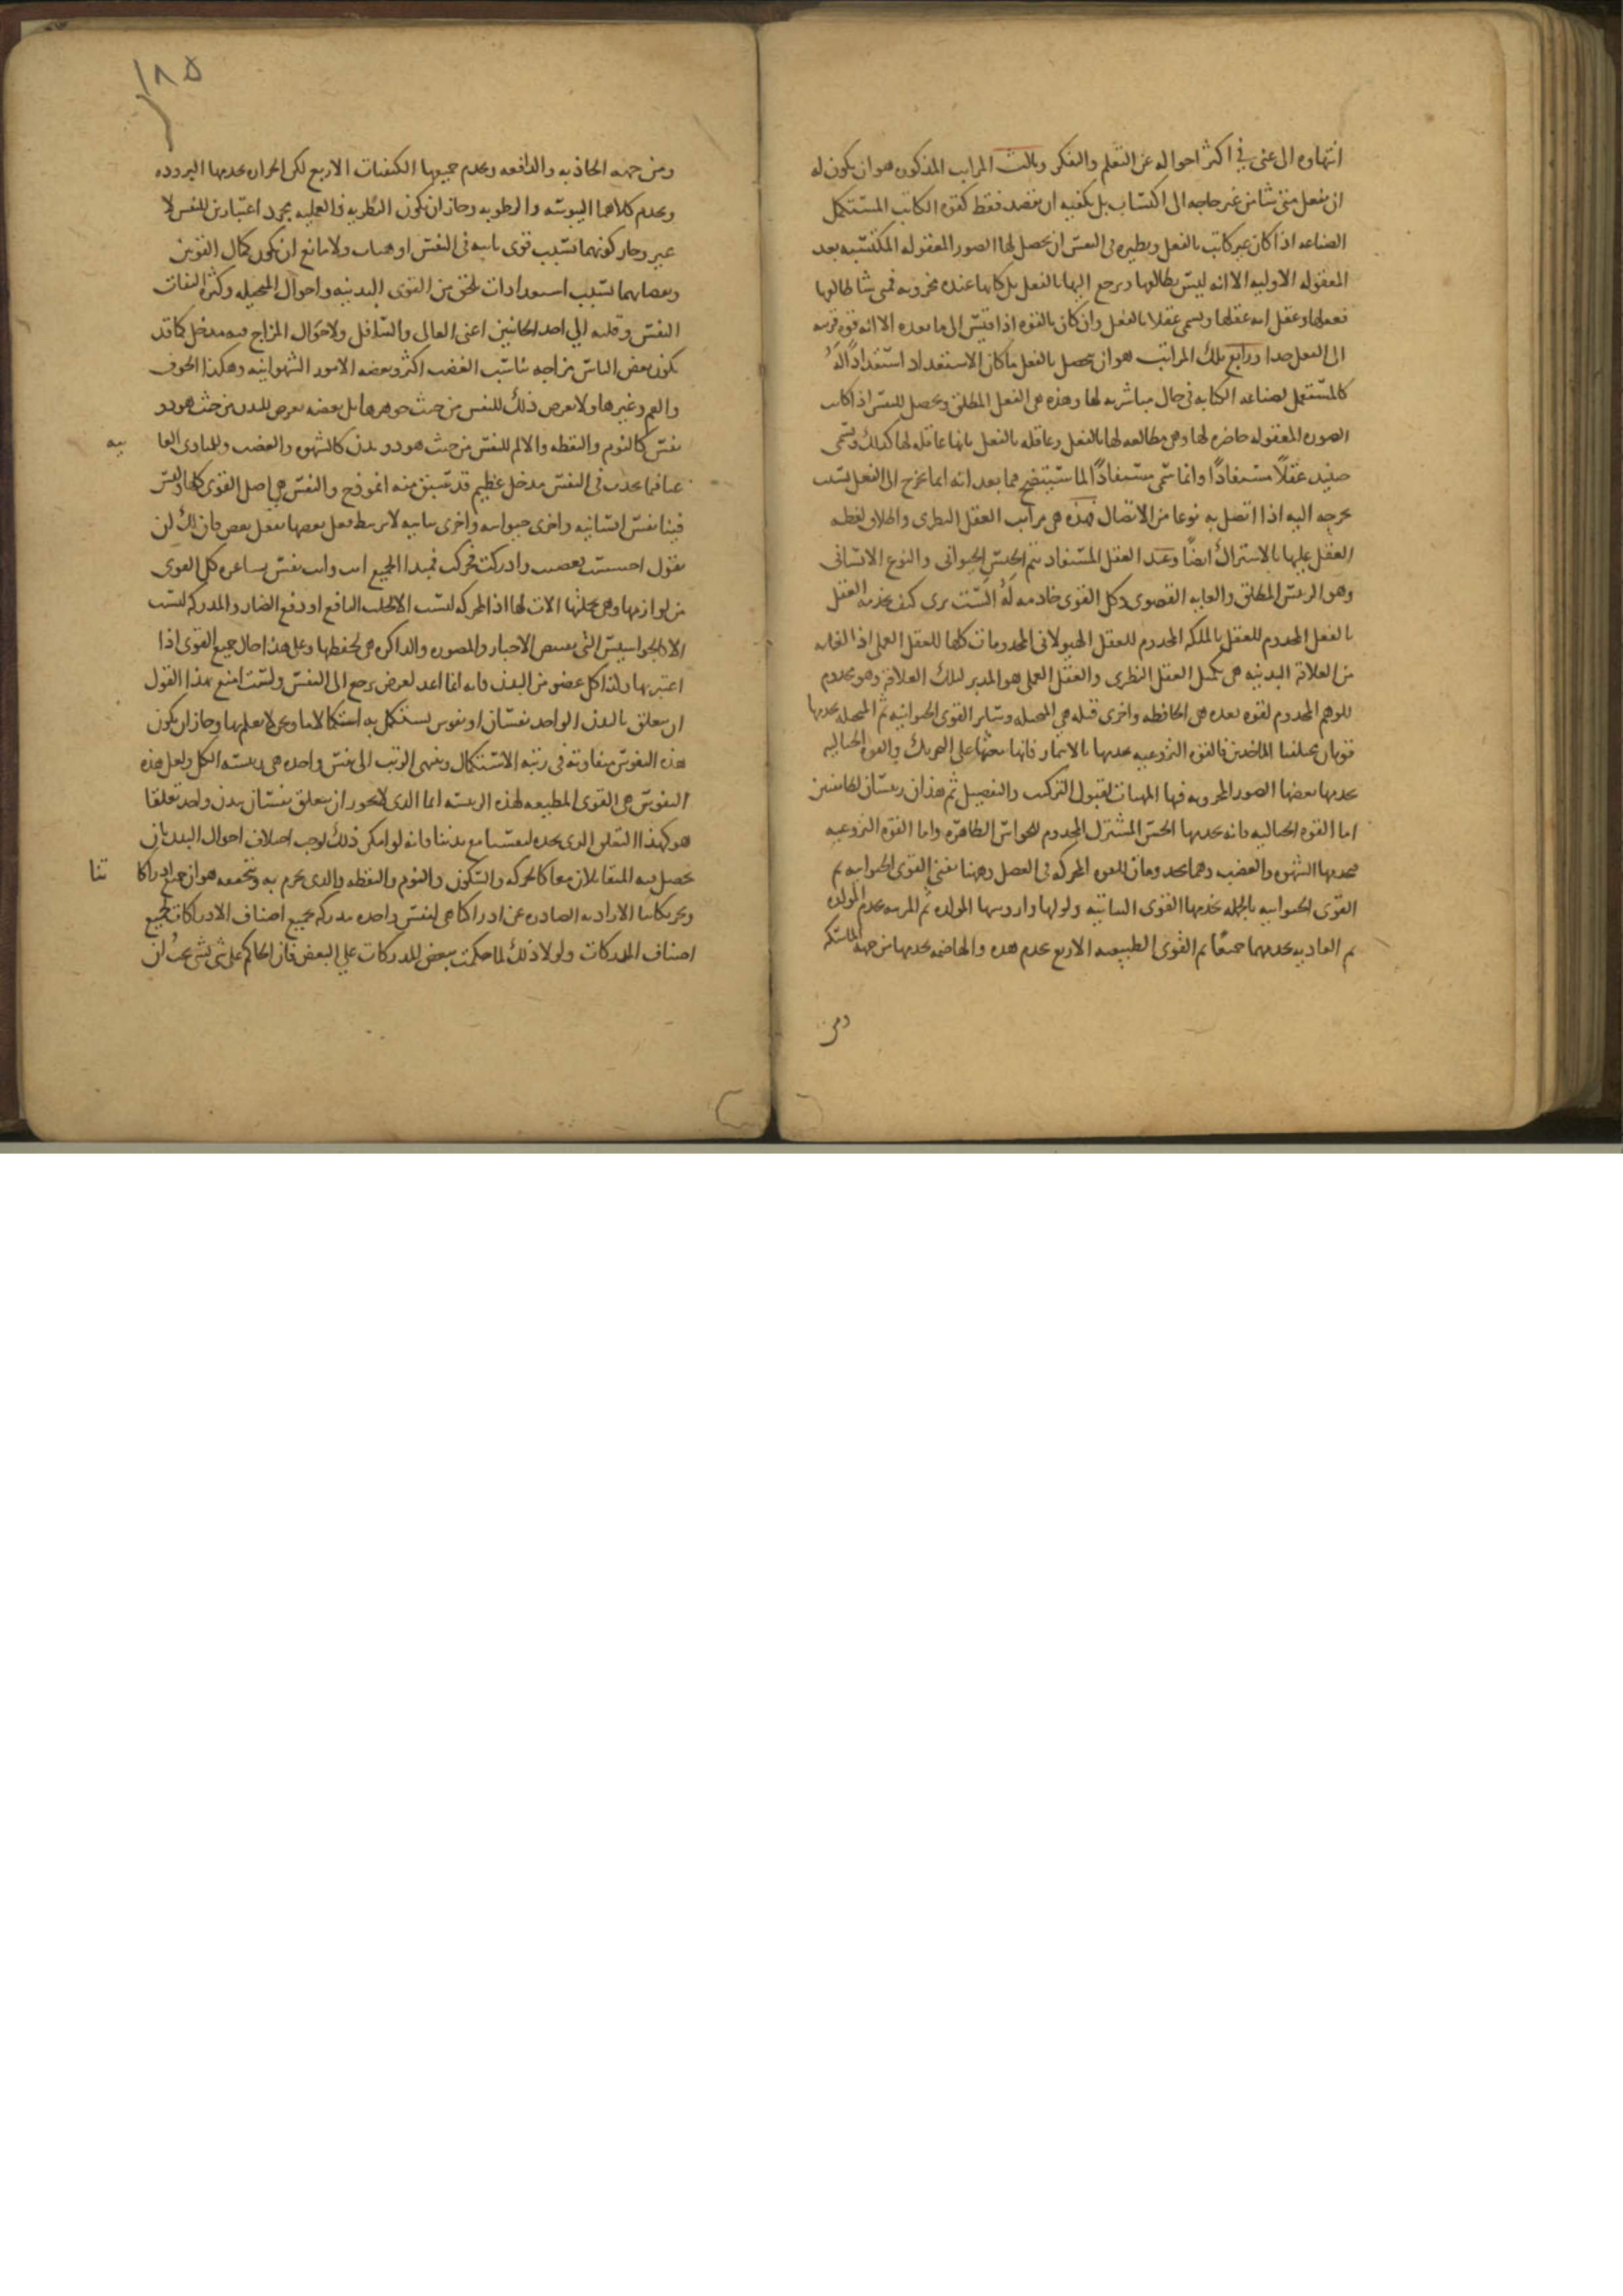 انتهاوه الى غنى في اكثر احواله عن التعلم والفكر وثالث المراتب المذكوره هو ان يكون له
ان يفعل متى شا من غير حاجه الى اكتساب بل يكفيه ان يقصد فقط كقوه الكاتب المستكمل
الصناعه اذا كان غير كاتب بالفعل ونظيره في النفس ان يحصل لها الصور المعقوله المكتسبه بعد
المعقوله الاوليه الا انه ليس يطالعها ويرجع اليها بالفعل بل كانها عنده مخزونه فمتى شا طالعها
فعقلها وعقل انه عقلها ويسمى عقلا بالفعل وان كان بالقوه اذا قيس الى ما بعده الا انه قوه قريبه
الى الفعل جدا ورابع تلك المراتب هو ان يحصل بالفعل ما كان الاستعداد استعدادًا لهُ
كالمستعمل لصناعه الكتابه في حال مباشرته لها وهذه هي الفعل المطلق ويحصل للنفس اذا كانت
الصوره المعقوله حاضره لها وهي مطالعه لها بالفعل وعاقله بالفعل بانها عاقله لها كذلك وتسمى
حينيذ عقلًا مستفادًا وانما سمى مستفادًا لما سيتضح فيما بعد انه انما يخرج الى الفعل بسبب
يخرجه اليه اذا اتصل به نوعا من الاتصال فهذه هي مراتب العقل النظرى واطلاق لفظه
العقل عليها بالاشتراك ايضًا وعند العقل المستفاد يتم الجنس الحيوانى والنوع الانسانى
وهو الرييس المطلق والغايه القصوى وكل القوى خادمه لهُ الست ترى كيف يخدمه العقل
بالفعل المخدوم للعقل بالملكه المخدوم للعقل الهيولانى المخدومات كلها للعقل العملى اذ الغايه
من العلاقه البدنيه هي تكميل العقل النظرى والعقل العملى هو المدبر لتلك العلاقه وهو مخدوم
للوهم المخدوم لقوه بعده هي الحافظه واخرى قبله هي المتخيله وساير القوى الحيوانيه ثم المتخيله يخدمها
قوتان مختلفتا الماخذين فالقوه النزوعيه يخدمها بالايتمار فانها تبعثها على التحريك والقوه الخياليه
يخدمها بعضها الصور المخزونه فيها المهيات لقبول التركيب والتفصيل ثم هذان رييسان لطايفتين
اما القوه الخياليه فانه يخدمها الحس المشترك المخدوم للحواس الظاهره واما القوه النزوعيه
فيخدمها الشهوه والغضب وهما يخدومان للقوه المحركه في العضل وههنا تفنى القوى الحيوانيه ثم
القوى الحيوانيه بالجمله يخدمها القوى النباتيه واولها واراسها المولده ثم المربيه يخدم المولده
ثم الغاديه يخدمهما جميعًا ثم القوى الطبيعيه الاربع يخدم هذه والهاضمه يخدمها من جهه الماسكه
ومن
١٨٥
ومن جهه الجاذبه والدافعه ويخدم جميعها الكيفيات الاربع لكن الحراره يخدمها البروده
ويخدم كلاهما اليبوسه والرطوبه وجاز ان يكون النظريه والعمليه مجرد اعتبارين للنفس لا
غير وجاز كونهما بسبب قوى ثابته في النفس او هيات ولا مانع ان يكون كمال القوتين
ونقصانهما بسبب استعدادات تلحق من القوى البدنيه واحوال المتخيله وكثره التفات
النفس وقلته الي احد الجانبين اعنى العالى والسافل ولاحوال المزاج فيه مدخل كما قد
يكون بعض الناس مزاجه يناسب الغضب اكثر وبعضه الامور الشهوانيه وهكذا الخوف
والغم وغيرها ولا يعرض ذلك للنفس من حيث جوهرها بل بعضه يعرض للبدن من حيث هو ذو
نفس كالنوم واليقظه والالم للنفس من حيث هو ذو بدن كالشهوه والغضب وللمبادى العا
ليه
عنا فيما يحدث في النفس مدخل عظيم قد سبق منه انموذج والنفس هي اصل القوى كلها وليس
فينا نفس انسانيه واخرى حيوانيه واخرى نباتيه لا يرتبط فعل بعضها بفعل بعض فان لك ان
تقول احسست فغضبت وادركت فحركت فمبدا الجميع انت وانت نفس شاعره وكل القوى
من لوازمها وهي بجملتها الات لها اذ المحركه ليست الا لجلب النافع او دفع الضار والمدركه ليست
الا كالجواسيس التى تقتنص الاخبار والمصوره والذاكره هى لحفظها وعلى هذا حال جميع القوى اذا
اعتبرتها وكذا كل عضو من البدن فانه انما اعد لغرض يرجع الى النفس ولست امنع بهذا القول
ان يتعلق بالبدن الواحد نفسان او نفوس يستكمل به استكمالا ما ونحن لا نعلمها وجاز ان يكون
هذه النفوس متفاوته في رتبه الاستكمال وينتهى الرتب الى نفس واحده هى رييسه الكل ولعل هذه
النفوس هي القوى المطيعه لهذه الرييسه انما الذى لا يجوز ان يتعلق نفسان ببدن واحد تعلقا
هو كهذا التعلق الذى نجده لنفسنا مع بدننا فانه لو امكن ذلك لوجب اختلاف احوال البدن بان
يحصل فيه المتقابلان معا كالحركه والسكون والنوم واليقظه والذى نجزم به ونتحققه هو ان جميع ادراكا
تنا
وتحريكاتنا الاراديه الصادره عن ادراكنا هى لنفس واحده مدركه بجميع اصناف الادراكات لجميع
اصناف المدركات ولولا ذلك لما حكمت ببعض المدركات علي البعض فان الحاكم على شى بشى يجبُ ان